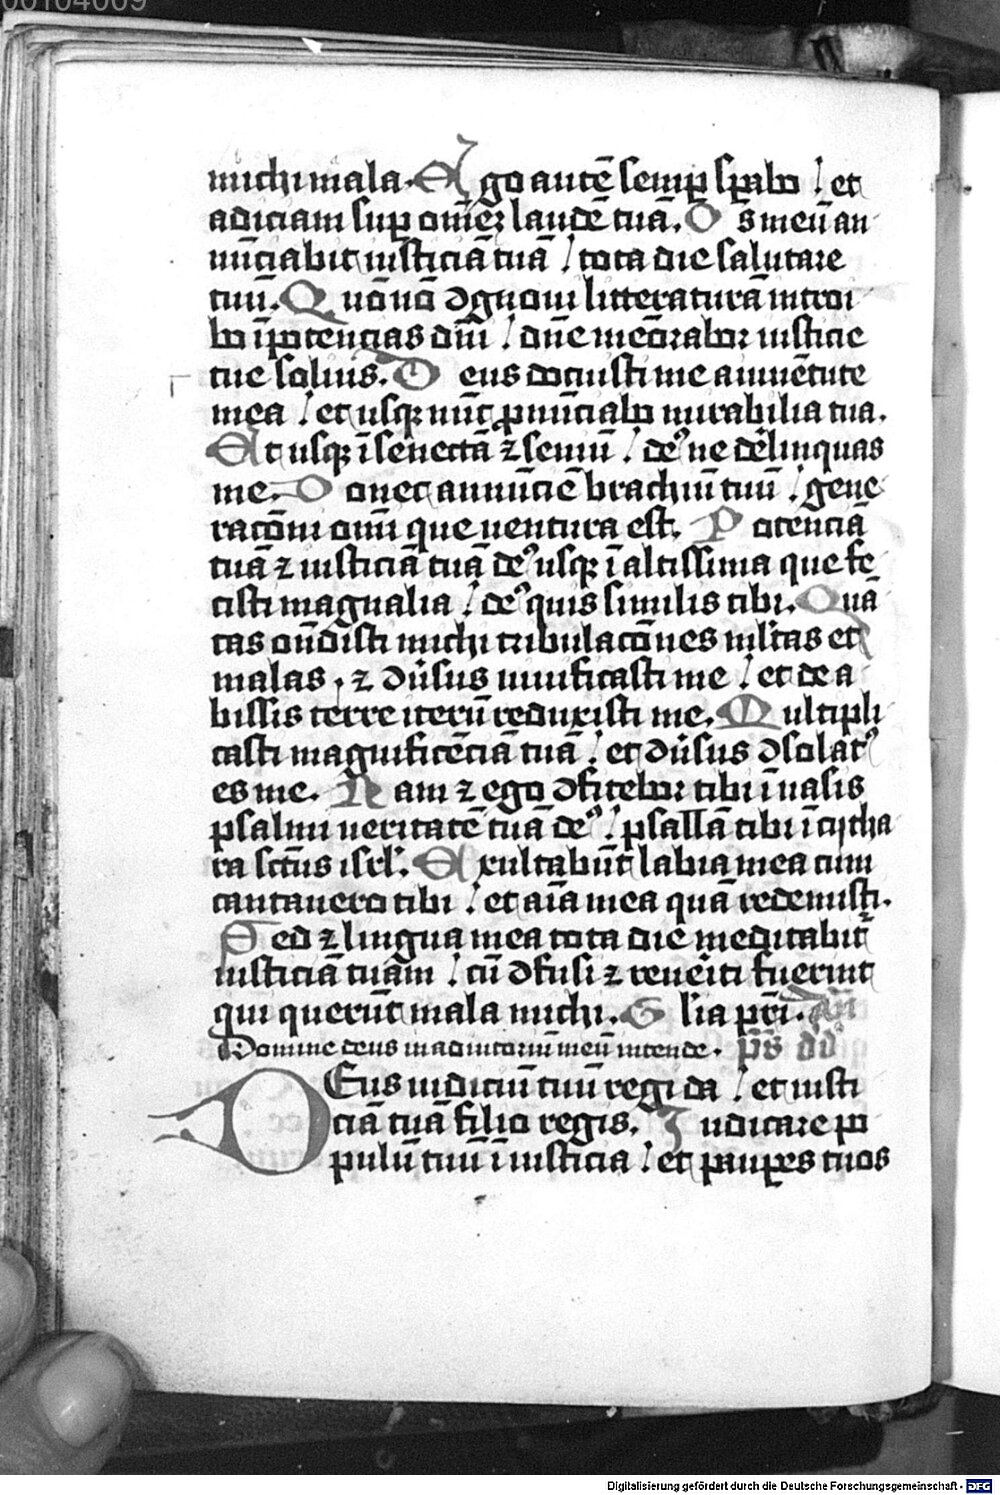 00104009
michi mala. Ego autē semꝑ sꝑabo / et
adiciam suꝑ om̄eꝫ laudē tuā. Os meū an
nūciabit iusticiā tuā / tota die salutare
tuū. Quōnō ꝯgnoui litteraturā introi
bo ī potencias dn̄i / dn̄e memorabor iusticie
tue solius. Deus docuisti me a iuuētute
mea / et usqꝫ nūc ꝓnūciabo mirabilia tua.
Et usqꝫ ī senectā ⁊ seniū / deꝰ ne delinquas
me. Donec annūciē brachiū tuū / gene
racōni om̄i que uentura est. Potenciā
tuā ⁊ iusticiā tuā deꝰ usqꝫ ī altissima que fe
cisti magnalia / deꝰ quis similis tibi. Quā
tas on̄disti michi tribulacōnes ml̄tas et
malas, ⁊ ꝯuersus uiuificasti me / et de a
bissis terre iterū reduxisti me. Multipli
casti magnificēciā tuā / et ꝯuersus ꝯsolatꝰ
es me. Nam ⁊ ego ꝯfitebor tibi ī uasis
psalmi ueritatē tuā deꝰ / psallā tibi ī cytha
ra sctūs isrl'. Exultabūt labia mea cum
cantauero tibi / et aīa mea quā redemisti.
Sed ⁊ lingua mea tota die meditabit
iusticiā tuam / cū ꝯfusi ⁊ reueriti fuerint
qui querūt mala michi. Glīa pr̄i. An̄
Domine deus in adiutoriū meū intende. p̄s dd
DEus iudiciū tuū regi da / et iusti
ciā tuā filio regis. Iudicare po
pulū tuū ī iusticia / et pauꝑes tuos
Digitalisierung gefördert durch die Deutsche Forschungsgemeinschaft - DFG